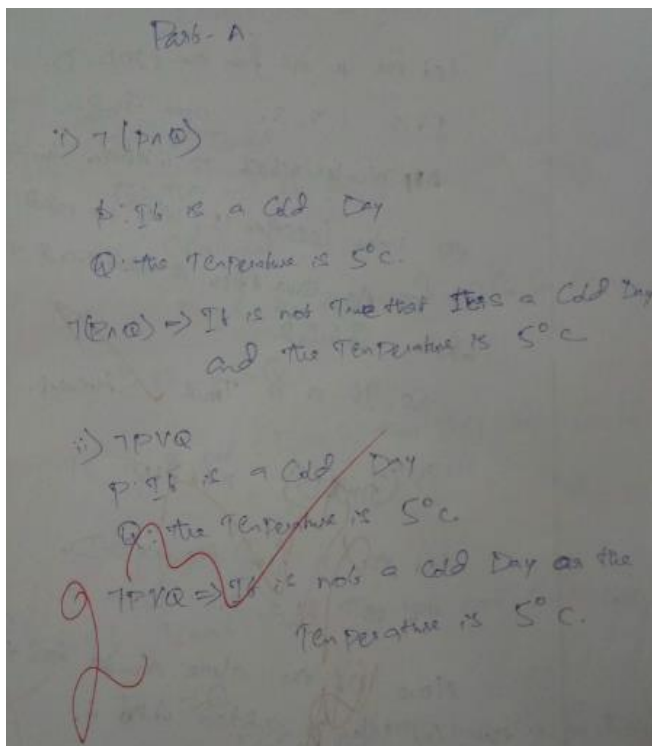 Part-A
i) ¬(P∧Q)
p: It is a Cold Day
Q: the Temperature is 5°C.
¬(P∧Q) ⇒ It is not True that It is a Cold Day
and the Temperature is 5°C
ii) ¬PVQ
p: It is a Cold Day
Q: the Temperature is 5°C.
¬PVQ ⇒ It is not a Cold Day or the
Temperature is 5°C.
2